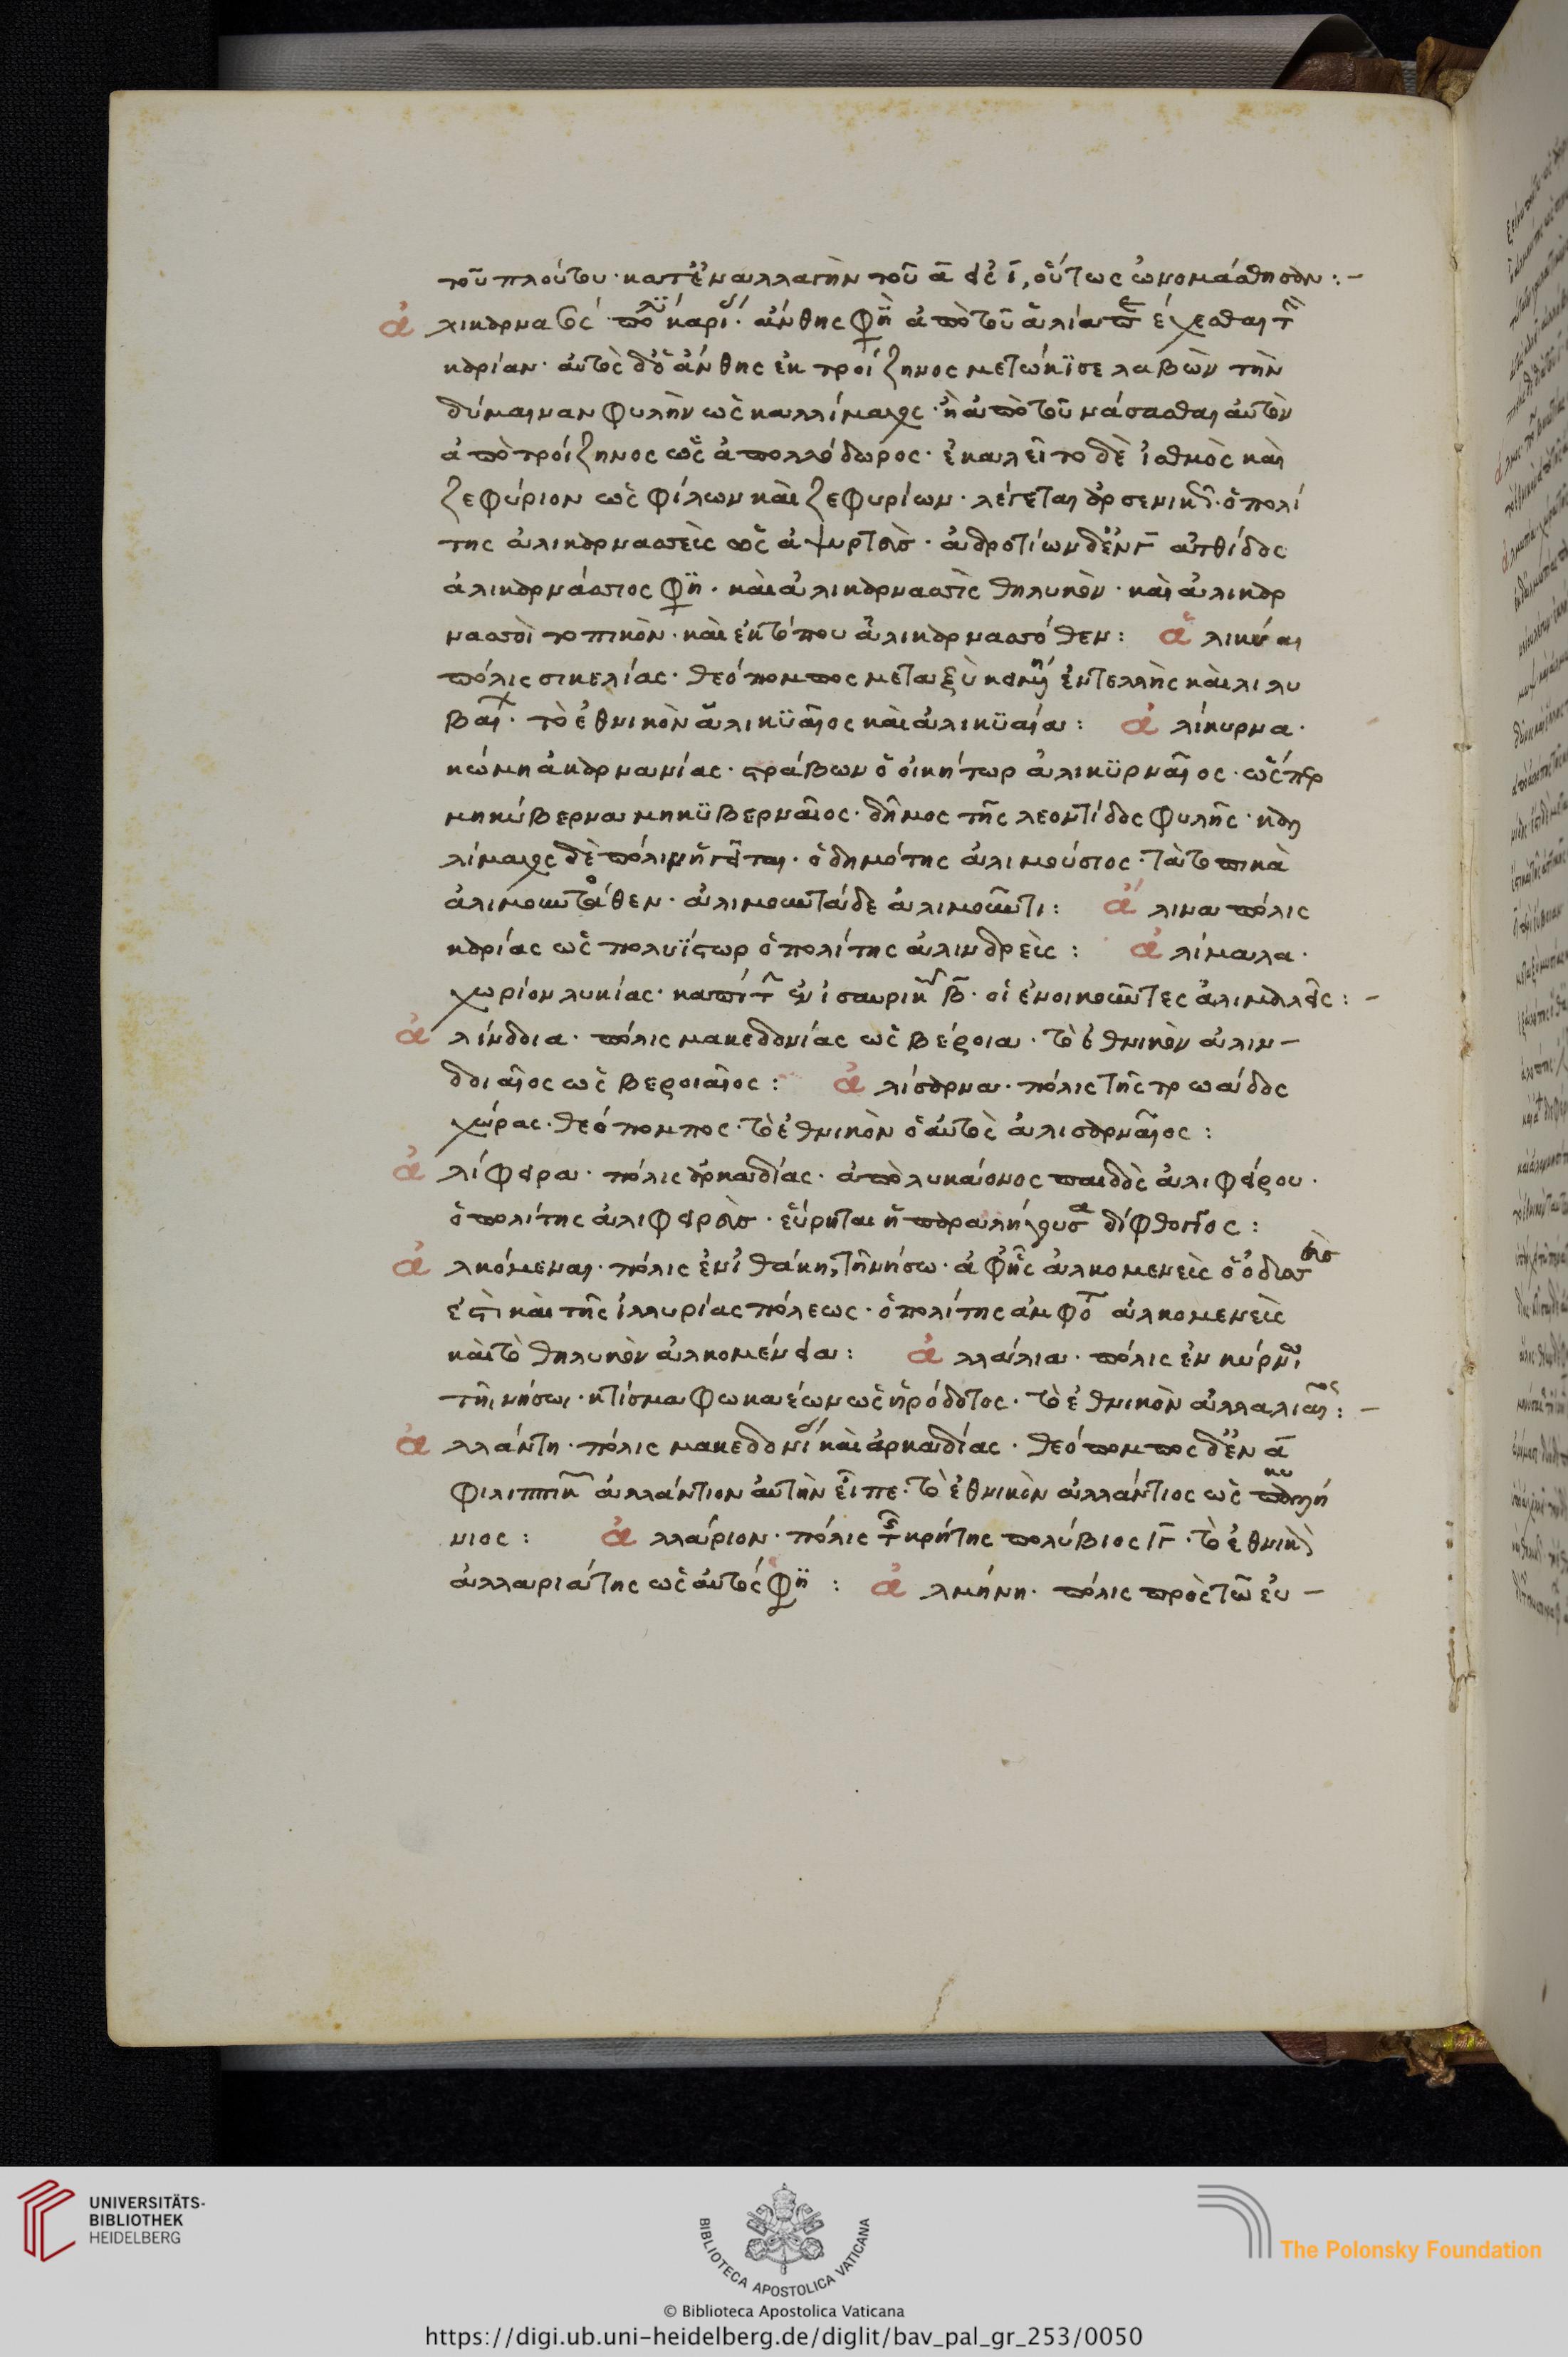 τοῦ πλούτου· κατ' ἐναλλαγὴν τοῦ ᾱ εἰς ῑ, οὕτως ὠνομάσθησαν :-
ἁλικαρνασός· πόλις καρίας· ἄνθης φη ἀπὸ τοῦ ἁλία περιέχεσθαι τὴν
καρίαν· αὐτὸς δὲ ὁ ἄνθης ἐκ τροίζηνος μετώκϊσε λαβὼν τὴν
δύμαιναν φυλὴν ὡς καλλίμαχος· ἢ ἀπὸ τοῦ νάσασθαι αὐτὸν
ἀπὸ τροίζηνος ὡς ἀπολλόδωρος· ἐκαλεῖτο δὲ ἰσθμὸς καὶ
ζεφύριον ὡς φίλων καὶ ζεφυρίων· λέγεται ἀρσενικῶς· ὁ πολί
της ἁλικαρνασσεὺς ὡς ἀψυρτεὺς· ἀνδροτίων δ' ἐν γ̄ ἀτθίδος
ἁλικαρνάσσιος φη· καὶ ἁλικαρνασσὶς θηλυκὸν· καὶ ἁλικαρ
νασσοῖ τοπικὸν· καὶ ἐκ τόπου ἁλικαρνασσόθεν : ἁλικύαι
πόλις σικελίας· θεόπομπος μεταξὺ κειμένη ἐντέλλης καὶ λιλυ
βαίου· τὸ ἐθνικὸν ἁλικϋαῖος καὶ ἁλικϋαία : ἁλίκυρνα·
κώμη ἀκαρνανίας· στράβων ὁ οἰκήτωρ ἁλικϋρναῖος· ὥσπερ
μηκύβερνα μηκϋβερναῖος· δῆμος τῆς λεοντίδος φυλῆς· καλ
λίμαχος δὲ πόλιν ἡγεῖται· ὁ δημότης ἁλιμούσιος· τὰ τοπικὰ
ἁλιμουντόθεν· ἁλιμουντάδε ἁλιμοῦντι : ἄλινα πόλις
καρίας ὡς πολυΐστωρ ὁ πολίτης ἀλινδρεὺς : ἀλίμαλα·
χωρίον λυκίας· καπίτων ἐν ἰσαυρικῶν β̄· οἱ ἐνοικοῦντες ἀλιμαλεῖς :-
ἀλίνδοια· πόλις μακεδονίας ὡς βέροια· τὸ ἐθνικὸν ἀλιν-
δοιαῖος ὡς βεροιαῖος : ἁλίσαρνα· πόλις τῆς τρωάδος
χώρας· θεόπομπος· τὸ ἐθνικὸν ὁ αὐτὸς ἁλισαρναῖος :
ἀλίφειρα· πόλις ἀρκαδίας· ἀπὸ λυκάονος παιδὸς ἀλιφείρου·
ὁ πολίτης ἀλιφειρεὺς· εὕρηται ἡ παραλήγουσα δίφθογγος :
ἀλκόμεναι· πόλις ἐν ἰθάκηι τῆ νήσω· ἀφ' ἧς ἀλκομενεὺς ὁ ὀδυσσεὺς
ἐστὶ καὶ τῆς ἰλλυρίας πόλεως· ὁ πολίτης ἀμφοτέρων ἀλκομενεὺς
καὶ τὸ θηλυκὸν ἀλκομένεια : ἀλλάλια· πόλις ἐν κύρνῳ
τῆι νήσωι· κτίσμα φωκαέων ὡς ἡρόδοτος· τὸ ἐθνικὸν ἀλλαλιαῖος :-
ἀλλάντη· πόλις μακεδονίας καὶ ἀρκαδίας· θεόπομπος δ' ἐν ᾱ
φιλιππικῶν ἀλλάντιον αὐτὴν εἶπε· τὸ ἐθνικὸν ἀλλάντιος ὡς παλλή
νιος : ἀλλάριον· πόλις τῆς κρήτης πολύβιος ιγ̄· τὸ ἐθνικὸν
ἀλλαριάτης ὡς αὐτός φη : ἀλμήνη· πόλις πρὸς τῶ εὐ-
UNIVERSITÄTS-
BIBLIOTHEK
HEIDELBERG
BIBLIOTECA APOSTOLICA VATICANA
The Polonsky Foundation
© Biblioteca Apostolica Vaticana
https://digi.ub.uni-heidelberg.de/diglit/bav_pal_gr_253/0050